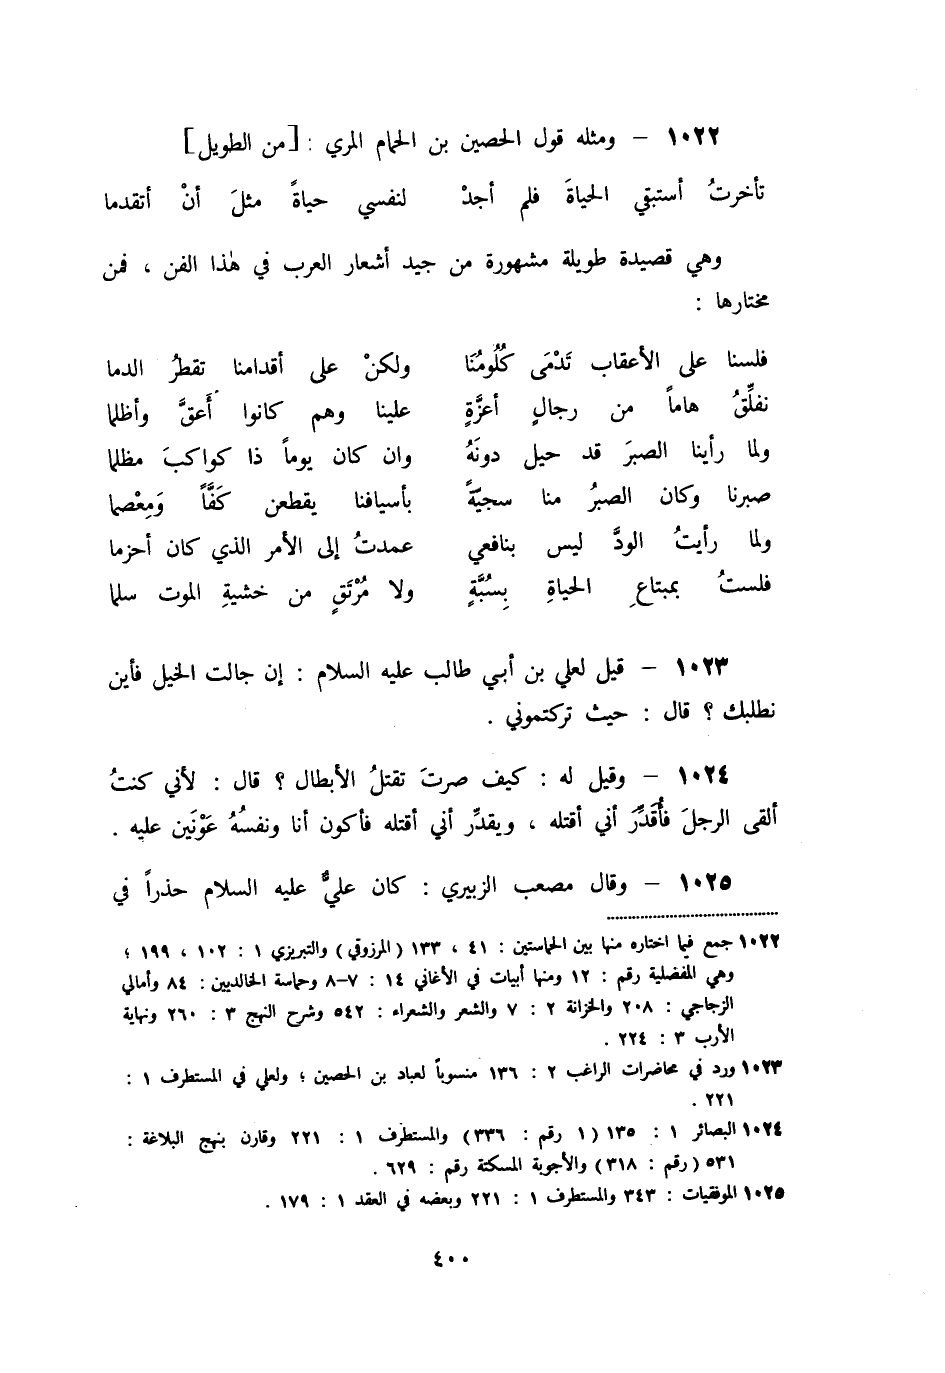 ١٠٢٢ – ومثله قول الحصين بن الحمام المري : [من الطويل]
تأخرتُ أستبقي الحياةَ فلم أجدْ لنفسي حياةً مثلَ أنْ أتقدما
وهي قصيدة طويلة مشهورة من جيد أشعار العرب في هٰذا الفن ، فمن
مختارها :
فلسنا على الأعقاب تَدْمَى كُلُومُنَا ولكنْ على أقدامنا تقطرُ الدما
نفلِّقُ هاماً من رجالٍ أعزَّةٍ علينا وهم كانوا أَعقَّ وأظلما
ولما رأينا الصبرَ قد حيل دونَهُ وان كان يوماً ذا كواكبَ مظلما
صبرنا وكان الصبرُ منا سجيّةً بأسيافنا يقطعن كَفَّاً وَمِعْصما
ولما رأيتُ الودَّ ليس بنافعي عمدتُ إلى الأمر الذي كان أحزما
فلستُ بمبتاعِ الحياةِ بِسُبَّةٍ ولا مُرْتَقٍ من خشيةِ الموت سلما
١٠٢٣ – قيل لعلي بن أبي طالب عليه السلام : إن جالت الخيل فأين
نطلبك ؟ قال : حيث تركتموني .
١٠٢٤ – وقيل له : كيف صرتَ تقتلُ الأبطال ؟ قال : لأني كنتُ
ألقى الرجلَ فأُقَدِّرَ أني أقتله ، ويقدِّر أني أقتله فأكون أنا ونفسُهُ عَوْنَين عليه .
١٠٢٥ – وقال مصعب الزبيري : كان عليٌّ عليه السلام حذراً في
١٠٢٢ جمع فيما اختاره منها بين الحماستين : ٤١ ، ١٣٣ (المرزوقي) والتبريزي ١ : ١٠٢ ، ١٩٩ ؛
وهي المفضلية رقم : ١٢ ومنها أبيات في الأغاني ١٤ : ٧–٨ وحماسة الخالديين : ٨٤ وأمالي
الزجاجي : ٢٠٨ والخزانة ٢ : ٧ والشعر والشعراء : ٥٤٢ وشرح النهج ٣ : ٢٦٠ ونهاية
الأرب ٣ : ٢٢٤ .
١٠٢٣ ورد في محاضرات الراغب ٢ : ١٣٦ منسوباً لعباد بن الحصين ؛ ولعلي في المستطرف ١ :
٢٢١ .
١٠٢٤ البصائر ١ : ١٣٥ (١ رقم : ٣٣٦) والمستطرف ١ : ٢٢١ وقارن بنهج البلاغة :
٥٣١ (رقم : ٣١٨) والأجوبة المسكتة رقم : ٦٢٩ .
١٠٢٥ الموفقيات : ٣٤٣ والمستطرف ١ : ٢٢١ وبعضه في العقد ١ : ١٧٩ .
٤٠٠